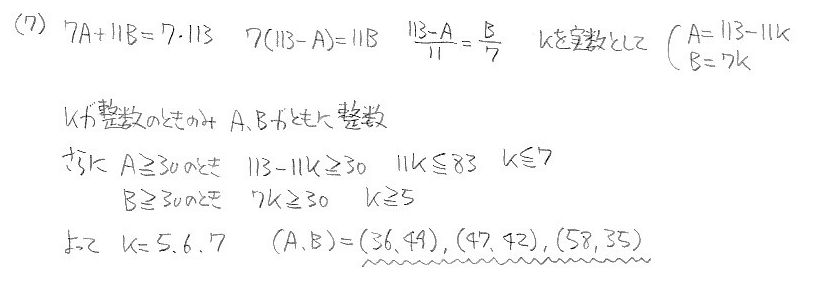 (7) 7A+11B=7・113 7(113-A)=11B (113-A)/11=B/7 kを実数として { A=113-11k
B=7k
kが整数のときのみ A、Bがともに整数
さらに A≧30のとき 113-11k≧30 11k≦83 k≦7
B≧30のとき 7k≧30 k≧5
よって k=5、6、7 (A、B)=(36、49)、(47、42)、(58、35)